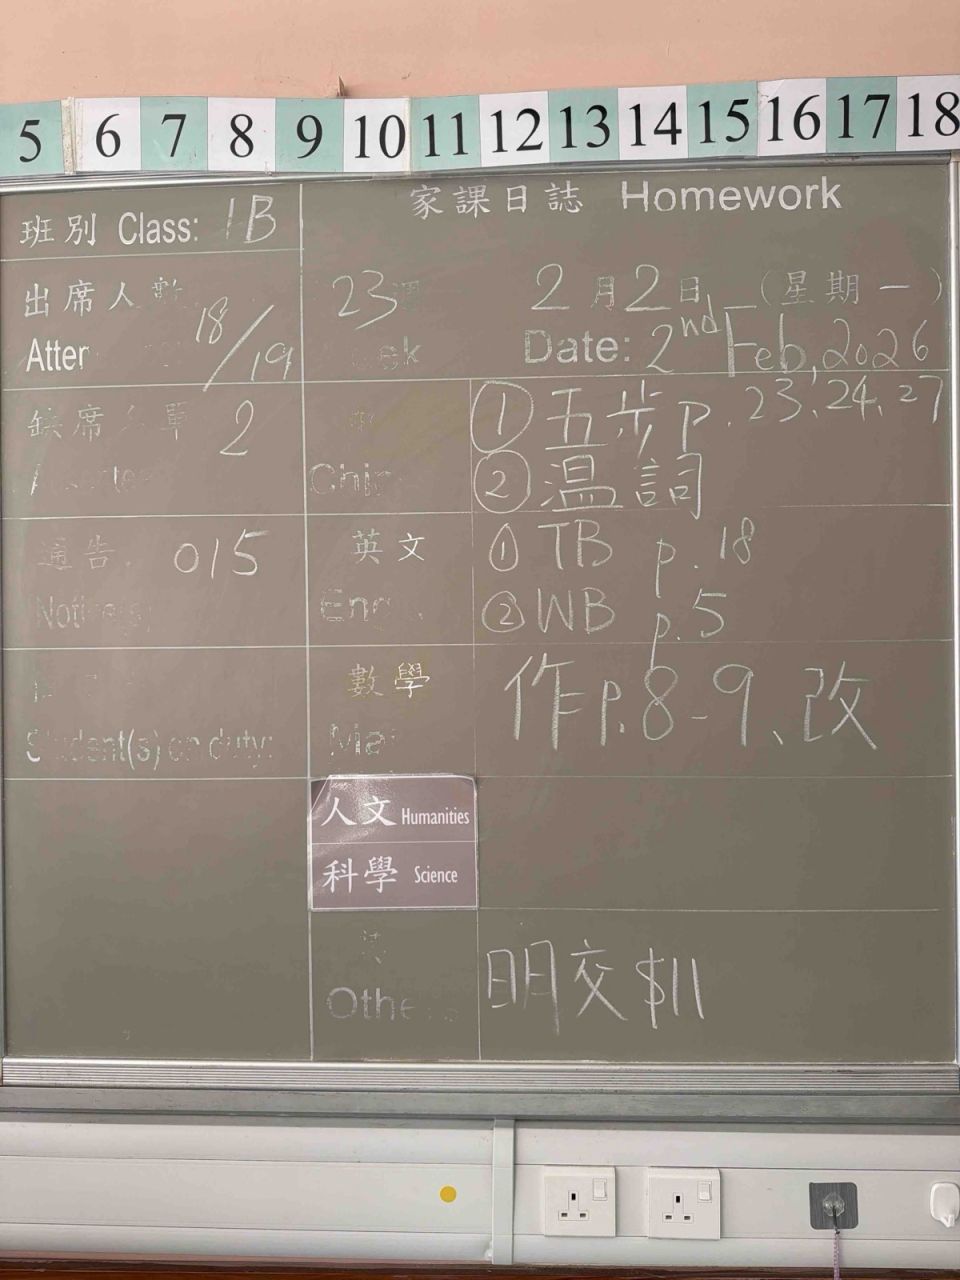 5 6 7 8 9 10 11 12 13 14 15 16 17 18
家課日誌 Homework
班別 Class: 1B
出席人數 18/19
23週 2月2日 (星期一)
Date: 2nd Feb, 2026
缺席人 2
① 五步 p. 23、24、27
② 溫詞
通告 015
英文 ① TB p. 18
② WB p. 5
數學 作 p. 8-9、改
Student(s) on duty:
人文 Humanities
科學 Science
明交 $11